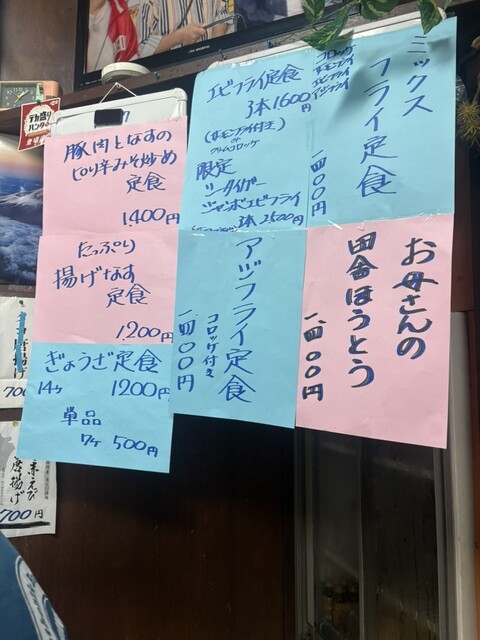 デカ盛り
ハンター
豚肉となすの
ピリ辛みそ炒め
定食
1.400円
たっぷり
揚げなす
定食
1.200円
ぎょうざ定食
14ヶ 1200円
単品
7ヶ 500円
エビフライ定食
3本1600円
限定
シータイガー
ジャンボエビフライ
3本2500円
ミックス
フライ定食
コロッケ
エビフライ
アジフライ
一四〇〇円
アジフライ定食
コロッケ付き
一四〇〇円
お母さんの
田舎ほうとう
一四〇〇円
唐揚げ
700円